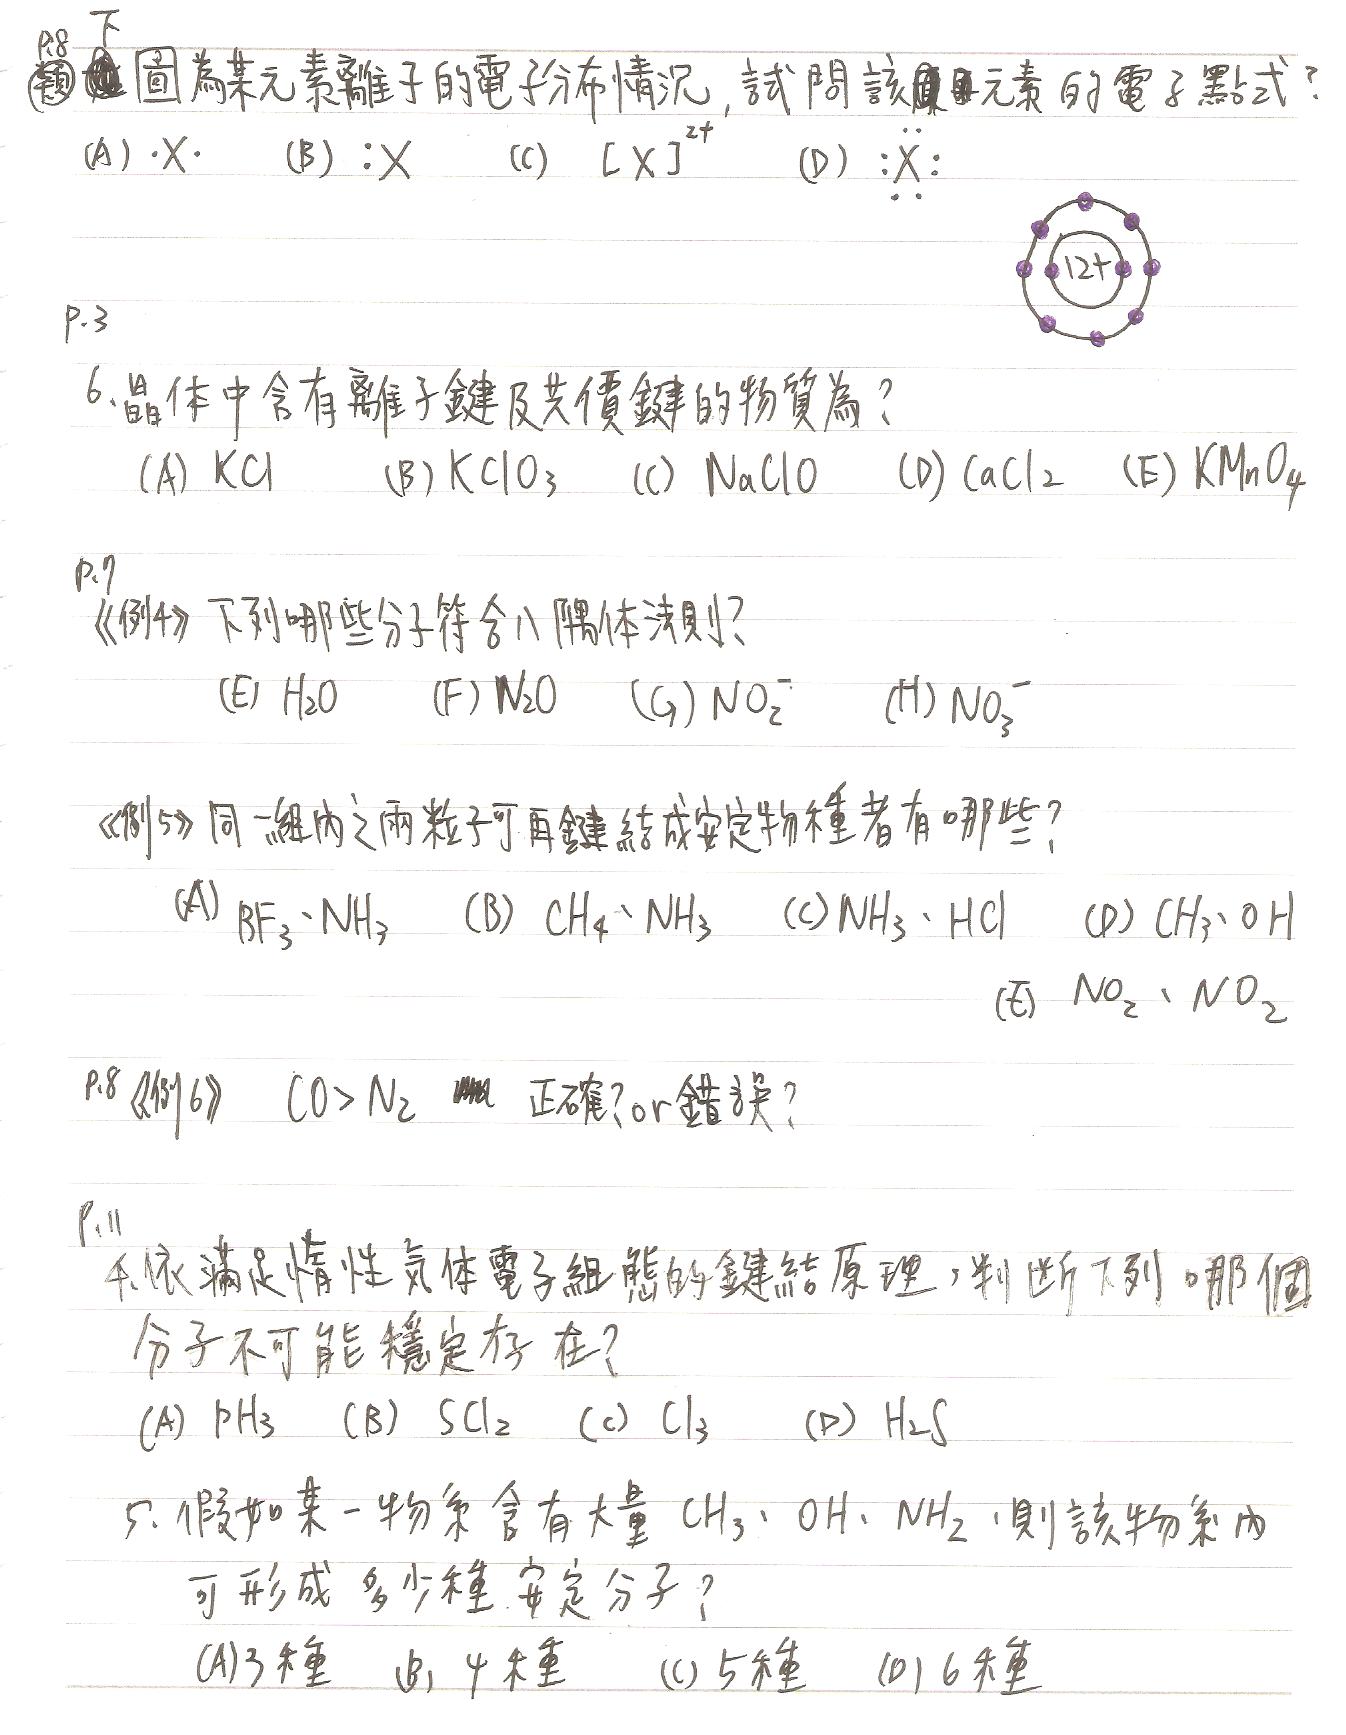 P.8 下
類 圖為某元素離子的電子分布情況,試問該元素的電子點式?
(A) ·X· (B) :X (C) [X]²⁺ (D) :Ẍ:
12+
P.3
6、晶体中含有離子鍵及共價鍵的物質為?
(A) KCl (B) KClO₃ (C) NaClO (D) CaCl₂ (E) KMnO₄
P.7
《例4》下列哪些分子符合八隅体法則?
(E) H₂O (F) N₂O (G) NO₂⁻ (H) NO₃⁻
《例5》同一組內之兩粒子可再鍵結成安定物種者有哪些?
(A) BF₃、NH₃ (B) CH₄、NH₃ (C) NH₃、HCl (D) CH₃、OH
(E) NO₂、NO₂
P.8《例6》 CO>N₂ 正確?or錯誤?
P.11
4.依滿足惰性気体電子組態的鍵結原理,判斷下列哪個
分子不可能穩定存在?
(A) PH₃ (B) SCl₂ (C) Cl₃ (D) H₂S
5.假如某一物系含有大量 CH₃、OH、NH₂,則該物系內
可形成多少種安定分子?
(A)3種 (B)4種 (C)5種 (D)6種